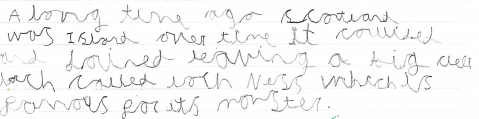 A long time ago Scotland
was Island over time it collided
and Joined leaving a big
loch called loch Ness which is
famous for its monster.